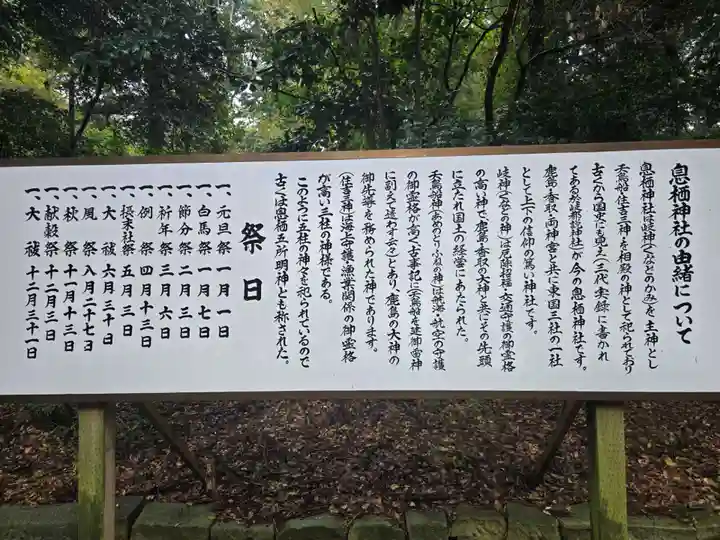 息栖神社の由緒について
息栖神社は岐神(くなどのかみ)を主神とし
天鳥船、住吉三神を相殿の神として祀られており
古くから国史にも見え(三代実録)に書かれ
てある於岐都説神社が今の息栖神社です。
鹿島・香取・両神宮と共に東国三社の一社
として上下の信仰の篤い神社です。
岐神(くなどの神)は厄除招福・交通守護の御霊格
の高い神で、鹿島、香取の大神と共にその先頭
に立たれ国土の経営にあたられた。
天鳥船神(あめのとりふねの神)は航海・航空の守護
の御霊格が高く古事記に(天鳥船を建御雷神
に副えて遣わす云々)とあり、鹿島の大神の
御先導を務められた神であります。
(住吉三神)は海上守護漁業関係の御霊格
が高い三柱の神様である。
このように五柱の神々を祀られているので
古くは息栖五所明神とも称された。
祭日
一、元旦祭 一月一日
一、白馬祭 一月七日
一、節分祭 二月三日
一、祈年祭 三月六日
一、例祭 四月十三日
一、摂末社祭 五月三日
一、大祓 六月三十日
一、風祭 八月二十七日
一、秋祭 十一月十三日
一、献穀祭 十二月三日
一、大祓 十二月三十一日